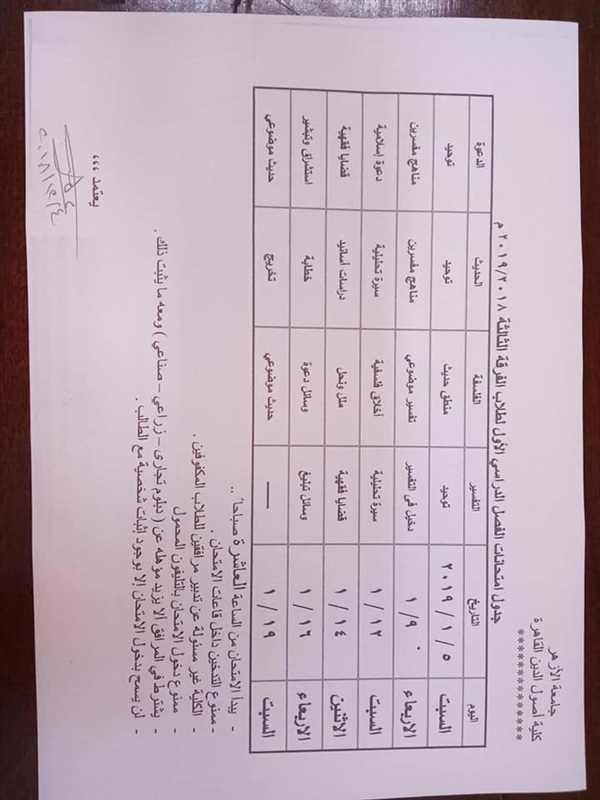 جامعة الأزهر
كلية أصول الدين القاهرة
*************
جدول امتحانات الفصل الدراسي الأول لطلاب الفرقة الثالثة ٢٠١٩/٢٠١٨ م
اليوم التاريخ التفسير الفلسفة الحديث الدعوة
السبت ٢٠١٩ / ١ / ٥ توحيد منطق حديث توحيد توحيد
الاربعاء ١ / ٩ دخيل فى التفسير تفسير موضوعي مناهج مفسرين مناهج مفسرين
السبت ١ / ١٢ سيرة تحليلية أخلاق فلسفية سيرة تحليلية دعوة إسلامية
الاثنين ١ / ١٤ قضايا فقهية ملل ونحل دراسات أسانيد قضايا فقهية
الاربعاء ١ / ١٦ وسائل تبليغ وسائل دعوة خطابة استشراق وتبشير
السبت ١ / ١٩ — حديث موضوعي تخريج حديث موضوعي
- يبدأ الامتحان من الساعة العاشرة صباحاً ..
- ممنوع التدخين داخل قاعات الامتحان .
- الكلية غير مسئولة عن تدبير مرافقين للطلاب المكفوفين .
- ممنوع دخول الامتحان بالتليفون المحمول
- يشترط في المرافق ألا يزيد مؤهله عن ( دبلوم تجارى – زراعي – صناعي ) ومعه ما يثبت ذلك .
- لن يسمح بدخول الامتحان إلا بوجود إثبات شخصية مع الطالب .
يعتمد ،،،